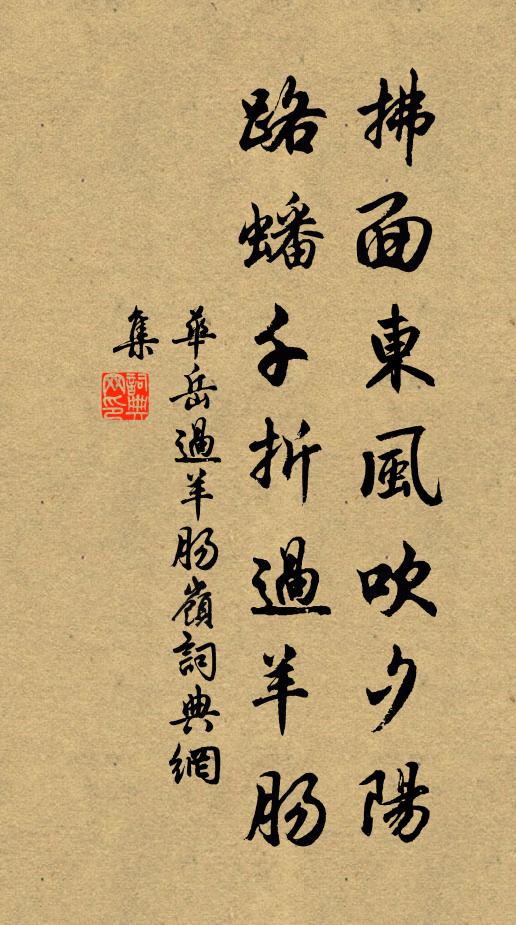 拂面東風吹夕陽
路蟠千折過羊腸
華岳過羊腸嶺詞典網
集
詞典網印